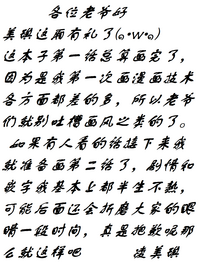 各位老爷好
美琪这厢有礼了(o•w•o)
这本子第一话总算画完了，
因为是我第一次画漫画技术
各方面都差的多，所以老爷
们就别吐槽画风之类的了。
如果有人看的话接下来我
就准备画第二话了，剧情和
嵌字我基本上都半生不熟，
可能后面还会折磨大家的眼
睛一段时间，真是抱歉呢那
么就这样吧 凌美琪